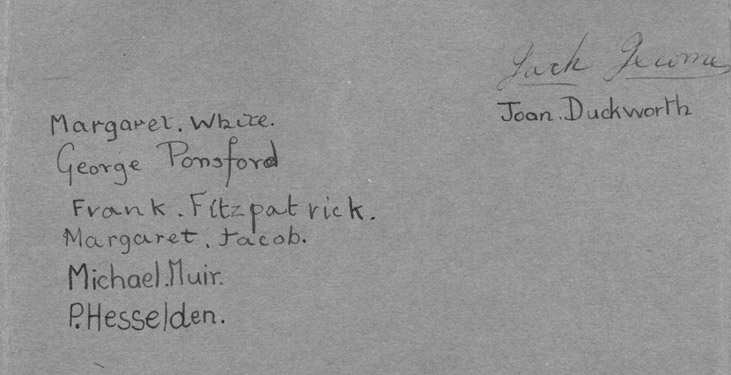 Jack Jerome
Joan. Duckworth
Margaret. White.
George Ponsford
Frank. Fitzpatrick.
Margaret. Jacob.
Michael. Muir.
P. Hesselden.